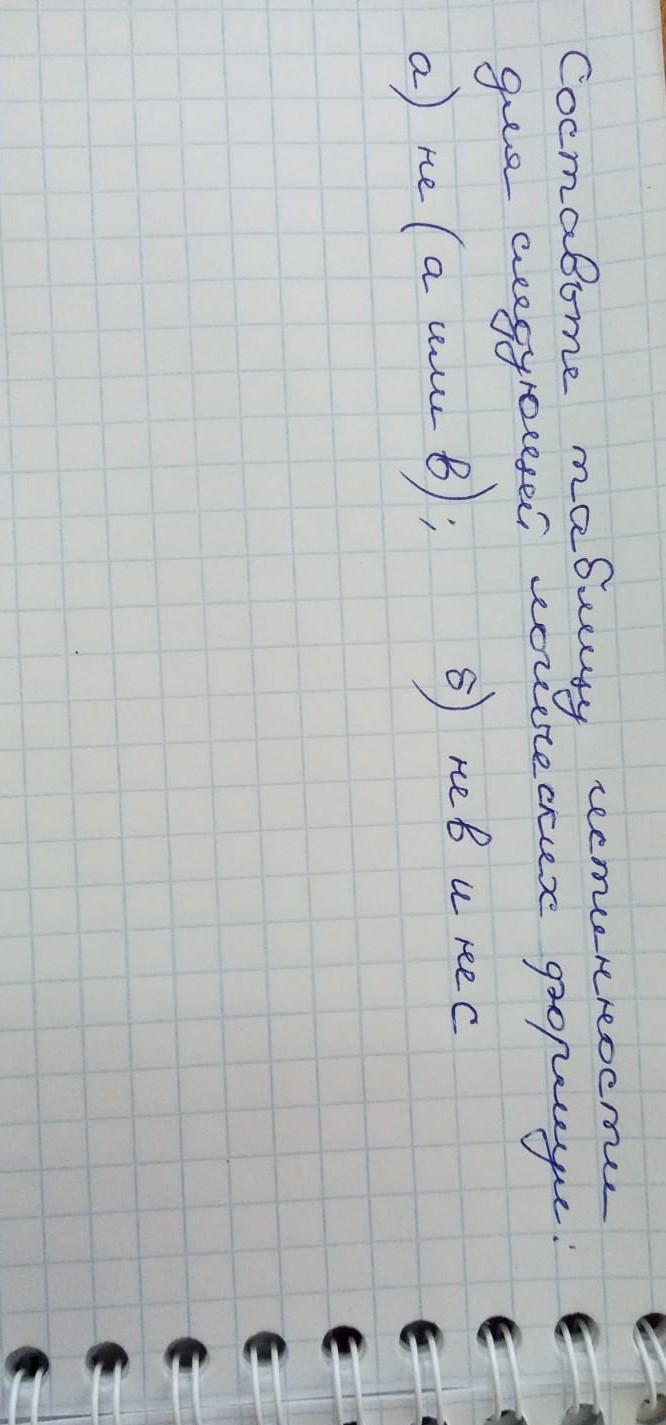 Составьте таблицу истинности
для следующей логических формул:
а) не (а или в); б) не в и не с